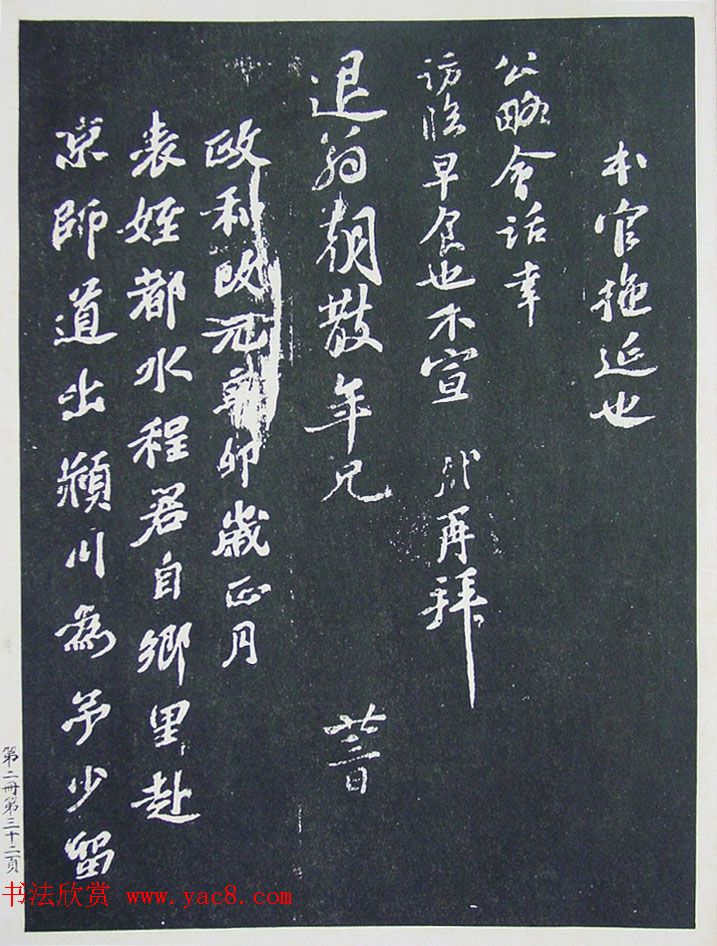 本官拖延也
公略會話幸
訪臨早食也不宣 軾再拜
退翁朝散年兄
政和改元辛卯歲正月
表姪都水程君自鄉里赴
京師道出潁川為予少留
第二冊第三十二頁
书法欣赏 www.yac8.com